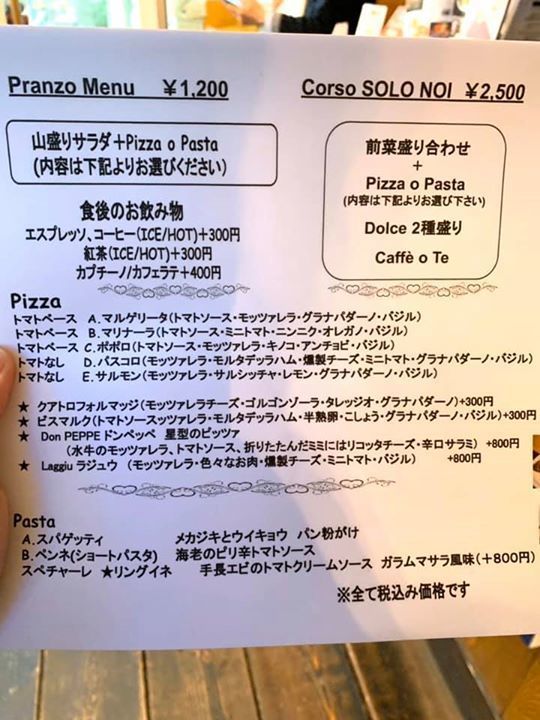 Pranzo Menu ￥1,200
山盛りサラダ＋Pizza o Pasta
(内容は下記よりお選びください)
食後のお飲み物
エスプレッソ、コーヒー(ICE/HOT)＋300円
紅茶(ICE/HOT)＋300円
カプチーノ/カフェラテ＋400円
Corso SOLO NOI ￥2,500
前菜盛り合わせ
＋
Pizza o Pasta
(内容は下記よりお選び下さい)
Dolce 2種盛り
Caffè o Te
Pizza
トマトベース A.マルゲリータ(トマトソース・モッツァレラ・グラナパダーノ・バジル)
トマトベース B.マリナーラ(トマトソース・ミニトマト・ニンニク・オレガノ・バジル)
トマトベース C.ポポロ(トマトソース・モッツァレラ・キノコ・アンチョビ・バジル)
トマトなし D.パスコロ(モッツァレラ・モルタデッラハム・燻製チーズ・ミニトマト・グラナパダーノ・バジル)
トマトなし E.サルモン(モッツァレラ・サルシッチャ・レモン・グラナパダーノ・バジル)
★ クアトロフォルマッジ(モッツァレラチーズ・ゴルゴンゾーラ・タレッジオ・グラナパダーノ)+300円
★ ビスマルク(トマトソースッツァレラ・モルタデッラハム・半熟卵・こしょう・グラナパダーノ・バジル)+300円
★ Don PEPPE ドンペッペ 星型のピッツァ
(水牛のモッツァレラ、トマトソース、折りたたんだミミにはリコッタチーズ・辛口サラミ) +800円
★ Laggiu ラジュウ (モッツァレラ・色々なお肉・燻製チーズ・ミニトマト・バジル) +800円
Pasta
A.スパゲッティ メカジキとウイキョウ パン粉がけ
B.ペンネ(ショートパスタ) 海老のピリ辛トマトソース
スペチャーレ ★リングイネ 手長エビのトマトクリームソース ガラムマサラ風味(＋800円)
※全て税込み価格です